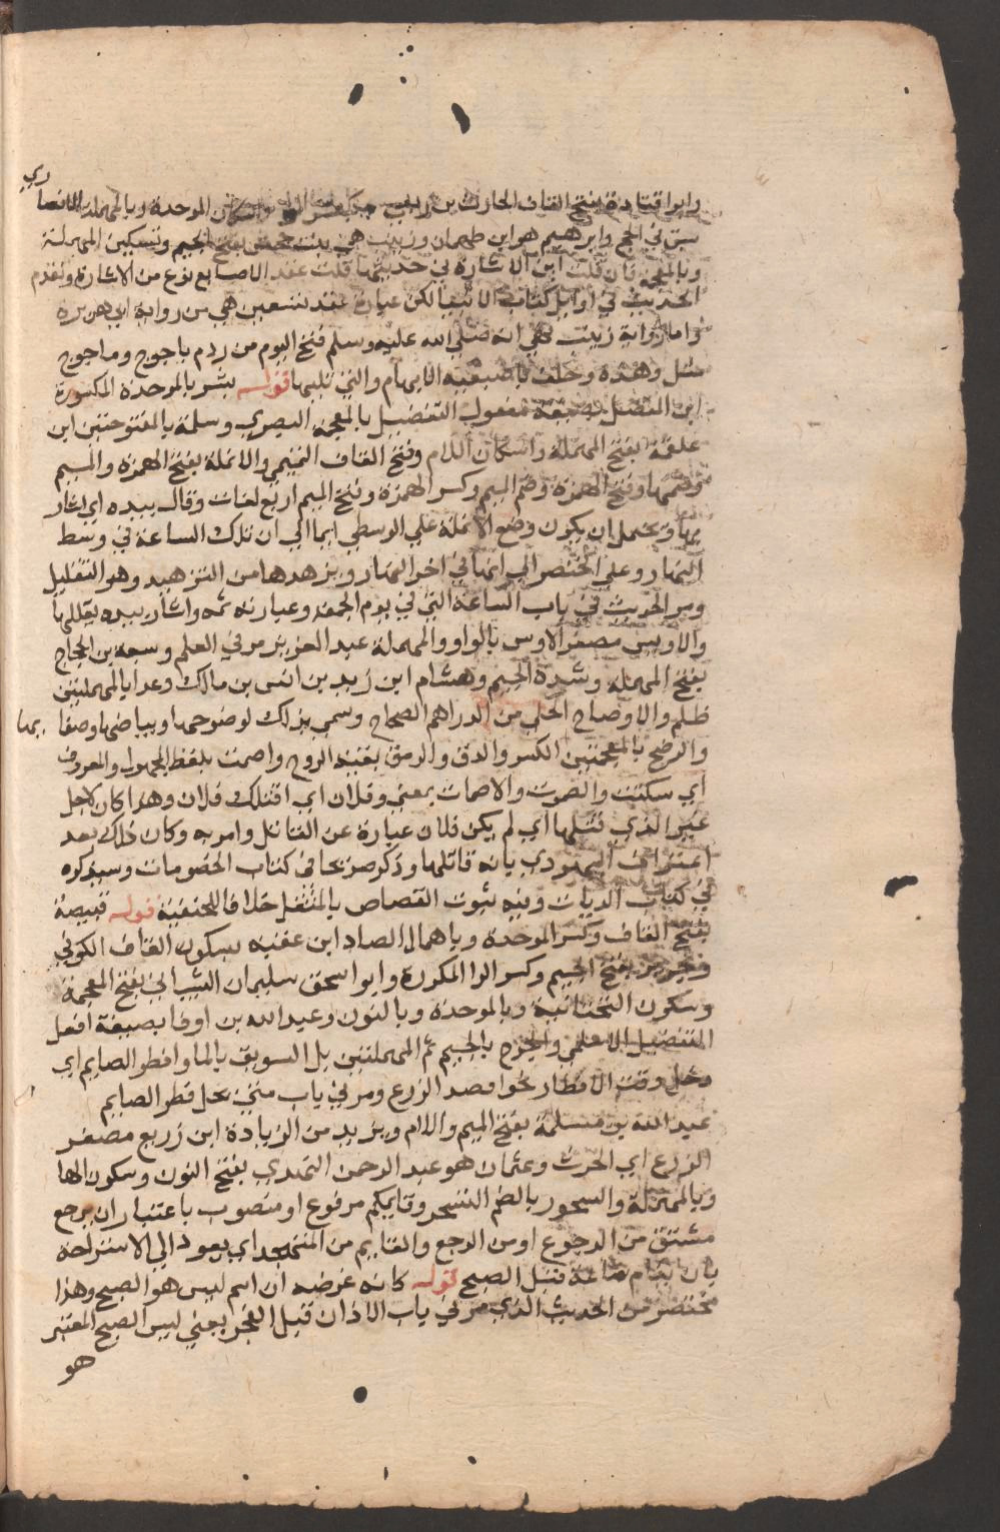 ري
وابو اقتادة بفتح القاف الحارث بن ربعي بكسر الرا واسكان الموحدة وبالمهملة الانصا
سبق في الحج وابرهيم هو ابن طهمان وزينب هي بنت جحش بفتح الجيم وتسكين المهملة
وبالمعجمة فان قلت اين الاشارة في حديثها قلت عقد الاصابع نوع من الاشارة وتقدم
الحديث في اوايل كتاب الانبيا لكن عبارة عقد تسعين هي من رواية ابي هريرة
واما رواية زينب فهي انه صلى الله عليه وسلم فتح اليوم من ردم ياجوج وماجوج
مثل وهذه وحلق باصبعيه الابهام والتي تليها قوله بشر بالموحدة المكسورة
ابن المفضل بصيغة مفعول التفضيل بالمعجمة البصري وسلمة بالمفتوحتين ابن
علقمة بفتح المهملة واسكان اللام وفتح القاف التميمي والانملة بفتح الهمزة والميم
وضمها وفتح الهمزة وضم الميم وكسر الهمزة وفتح الميم اربع لغات وقال بيده اي اشار
بها ويحتمل ان يكون وضع الانملة علي الوسطي ايما الي ان تلك الساعة في وسط
النهار وعلي الخنصر الي انها في اخر النهار ويزهدها من التزهيد وهو التقليل
ومر الحديث في باب الساعة التي في يوم الجمعة وعبارته ثمه واشار بيده يقللها
والاويس مصغر الاوس بالواو والمهملة عبد العزيز مر في العلم وسعبة بن الحجاج
بفتح المهملة وشدة الجيم وهشام ابن زيد بن انس بن مالك وعدا بالمهملتين
ظلم والاوضاح الحلي من الدراهم الصحاح وسمي بذلك لوضوحها وبياضها وصفا بها
والرضح بالمعجمتين الكسر والدق والرمق بقية الروح واصمتت بلفظ المجهول والمعروف
اي سكتت والصموت والاصمات بمعني وفلان اي اقتلك فلان وهذا كان لاجل
غير الذي قتلها اي لم يكن فلان عبارة عن القاتل وامر به وكان ذلك بعد
اعتراف اليهودي بانه قاتلها وذكر صريحا في كتاب الخصومات وسيذكره
في كتاب الديات وفيه ثبوت القصاص بالمثقل خلافا للحنفية قوله قبيصة
بفتح القاف وكسر الموحدة وباهمال الصاد ابن عقبة بسكون القاف الكوفي
وجرير بفتح الجيم وكسر الرا المكررة وابو اسحق سليمان الشيباني بفتح المعجمة
وسكون التحتانية وبالموحدة وبالنون وعبد الله بن اوفا بصيغة افعل
التفضيل الاسلمي واجدح بالجيم ثم المهملتين بل السويق بالما وافطر الصايم اي
دخل وقت الافطار نحو احصد الزرع ومر في باب متي يحل فطر الصايم
عبد الله بن مسلمة بفتح الميم واللام ويزيد من الزيادة ابن زريع مصغر
الزرع اي الحرث وعثمان هو عبد الرحمن النهدي بفتح النون وسكون الها
وبالمهملة والسحور بالضم التسحر وقايمكم مرفوع او منصوب باعتبار ان يرجع
مشتق من الرجوع او من الرجع والقايم من المتهجد اي يعود الي الاستراحة
بان ينام ساعة قبل الصبح قوله كانه غرضه ان اسم ليس هو الصبح وهذا
مختصر من الحديث الذي مر في باب الاذان قبل الفجر يعني ليس الصبح المعتبر
هو